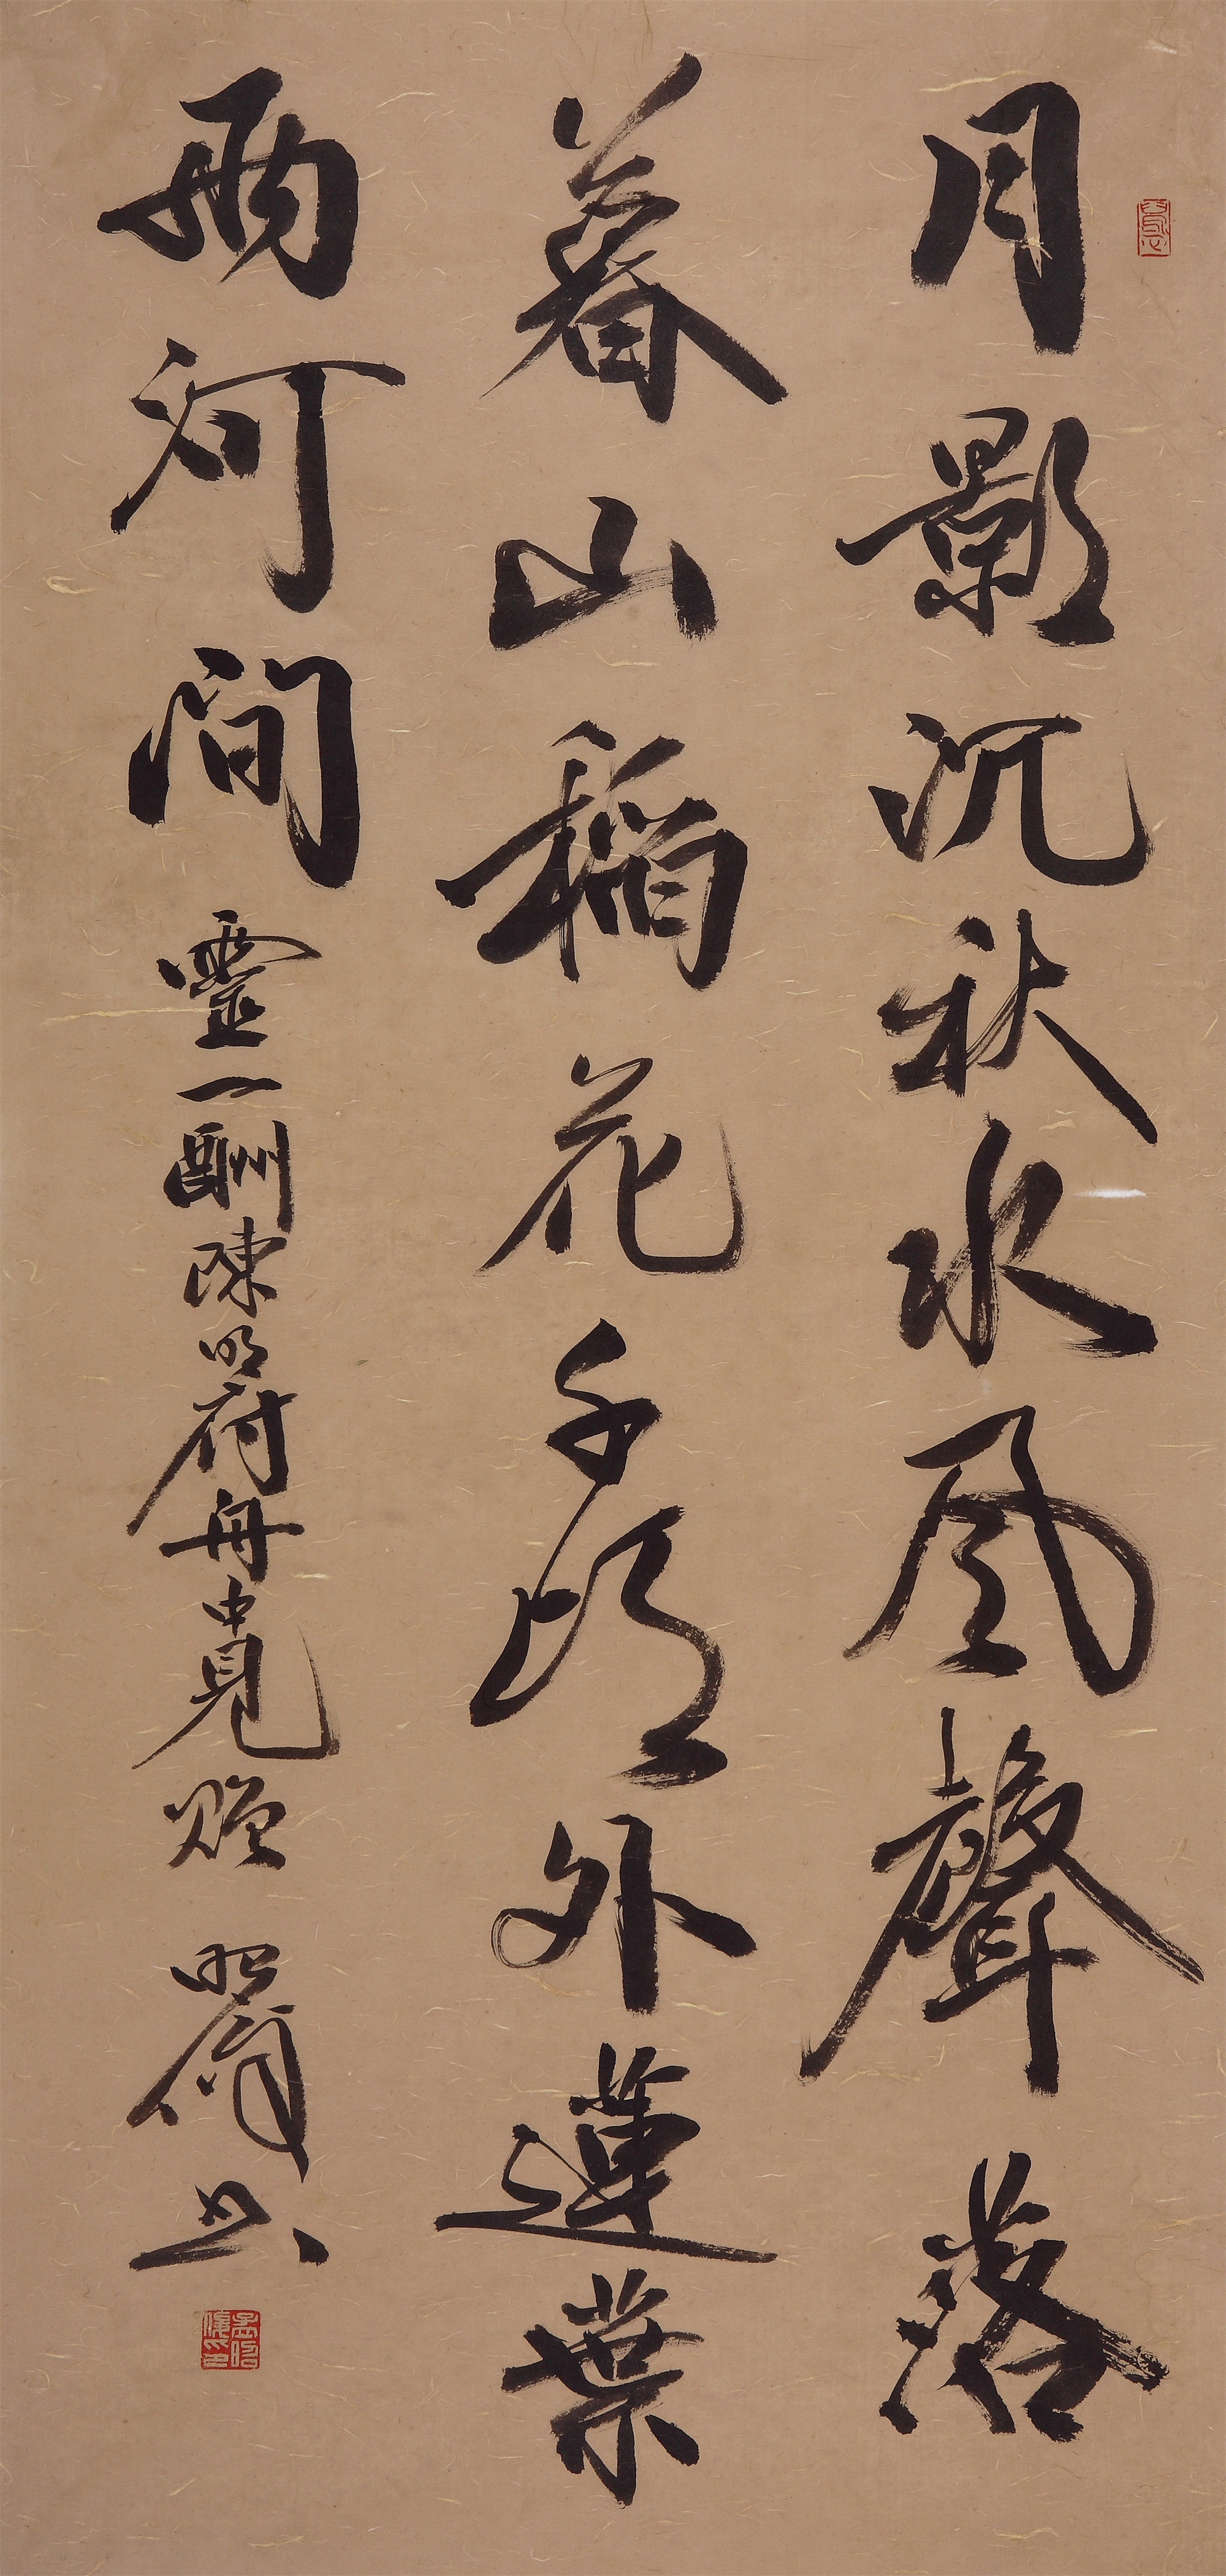 月影沉秋水風聲落
暮山稻花千頃外蓮葉
兩河間 靈一酬陳明府舟中見贈 昭